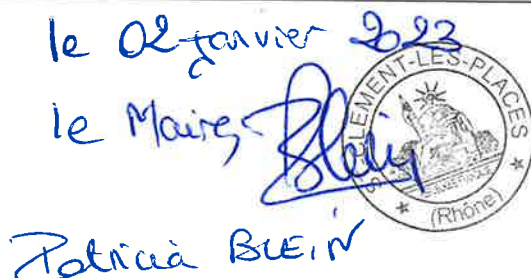 le 02 janvier 2023
le Maire,
Blein
S^t CLEMENT-LES-PLACES
* (Rhône) *
Patricia BLEIN